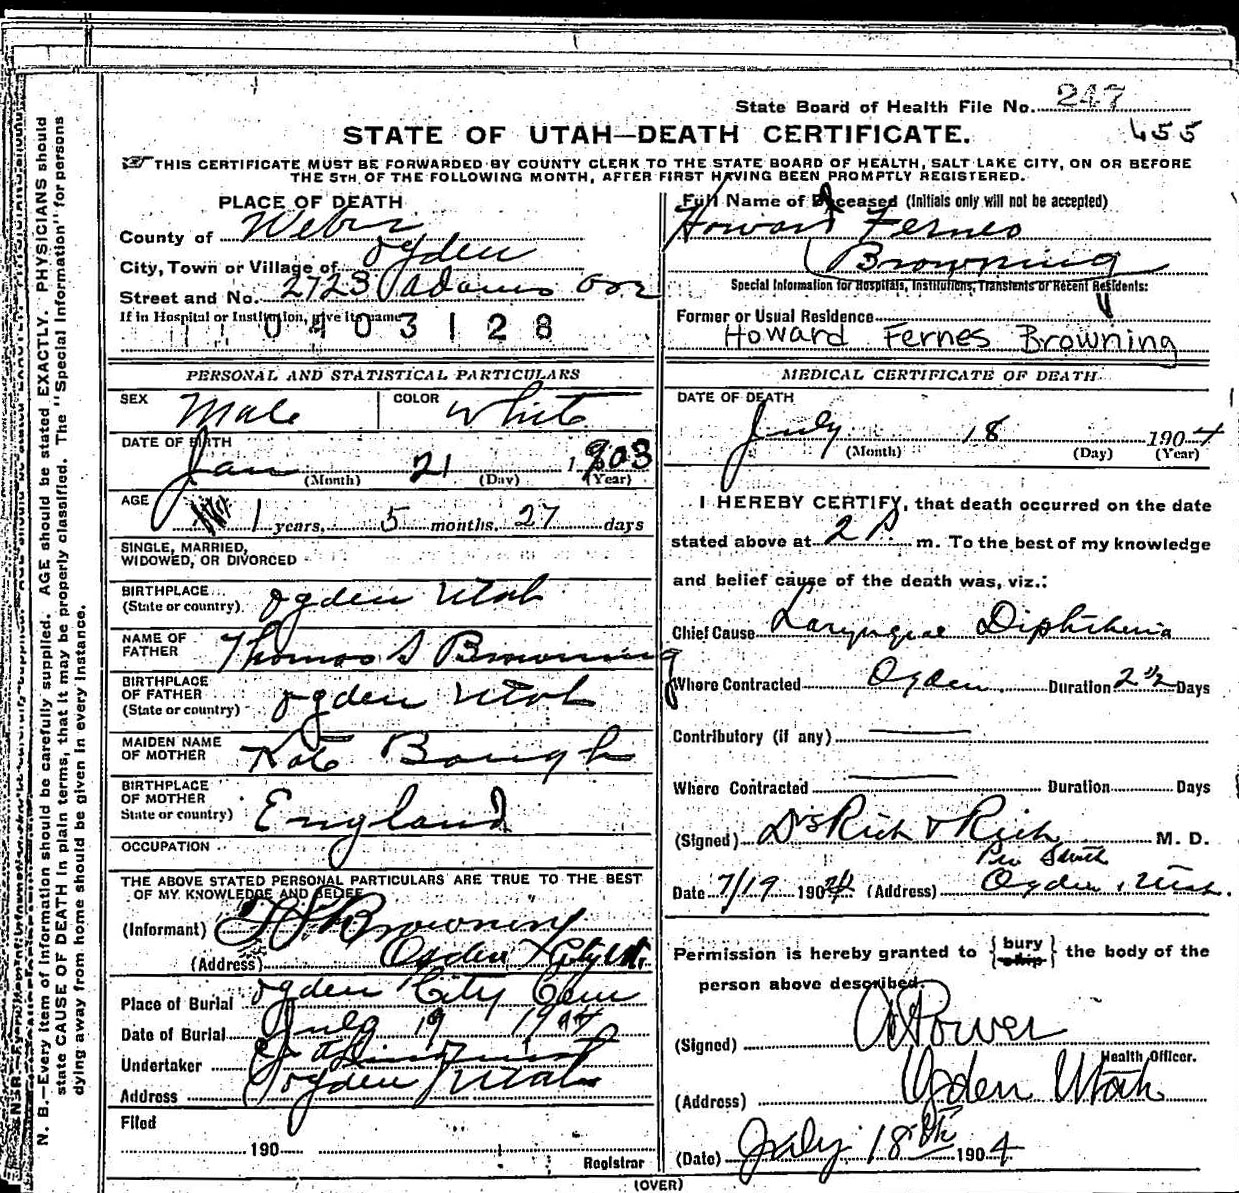 State Board of Health File No. 247
455
STATE OF UTAH—DEATH CERTIFICATE.
THIS CERTIFICATE MUST BE FORWARDED BY COUNTY CLERK TO THE STATE BOARD OF HEALTH, SALT LAKE CITY, ON OR BEFORE
THE 5TH OF THE FOLLOWING MONTH, AFTER FIRST HAVING BEEN PROMPTLY REGISTERED.
PLACE OF DEATH
County of Weber
City, Town or Village of Ogden
Street and No. 2723 Adams Ave
If in Hospital or Institution, give its name
0403128
Full Name of Deceased (Initials only will not be accepted)
Howard Fernes
Browning
Special Information for Hospitals, Institutions, Transients or Recent Residents:
Former or Usual Residence
Howard Fernes Browning
PERSONAL AND STATISTICAL PARTICULARS
SEX Male COLOR White
DATE OF BIRTH
Jan 21 1903
(Month) (Day) (Year)
AGE 1 years, 5 months, 27 days
SINGLE, MARRIED,
WIDOWED, OR DIVORCED
BIRTHPLACE
(State or country) Ogden Utah
NAME OF
FATHER Thomas S Browning
BIRTHPLACE
OF FATHER
(State or country) Ogden Utah
MAIDEN NAME
OF MOTHER Kate Baugh
BIRTHPLACE
OF MOTHER
State or country) England
OCCUPATION
THE ABOVE STATED PERSONAL PARTICULARS ARE TRUE TO THE BEST
OF MY KNOWLEDGE AND BELIEF
(Informant) T S Browning
(Address) Ogden City Ut.
Place of Burial Ogden City Cem
Date of Burial July 19 1904
Undertaker
Address Ogden Utah
Filed
190
Registrar
MEDICAL CERTIFICATE OF DEATH
DATE OF DEATH
July 18 1904
(Month) (Day) (Year)
I HEREBY CERTIFY, that death occurred on the date
stated above at 2 P. m. To the best of my knowledge
and belief cause of the death was, viz.:
Chief Cause Laryngeal Diphtheria
Where Contracted Ogden Duration 2 1/2 Days
Contributory (if any)
Where Contracted Duration Days
(Signed) Drs Rich & Rich M. D.
Per Smith
Date 7/19 1904 (Address) Ogden, Utah.
Permission is hereby granted to { bury ship } the body of the
person above described.
(Signed) A Power
Health Officer.
(Address) Ogden Utah
(Date) July 18th 1904
(OVER)
N. B.—Every item of information should be carefully supplied. AGE should be stated EXACTLY. PHYSICIANS should
state CAUSE OF DEATH in plain terms, that it may be properly classified. The "Special Information" for persons
dying away from home should be given in every instance.